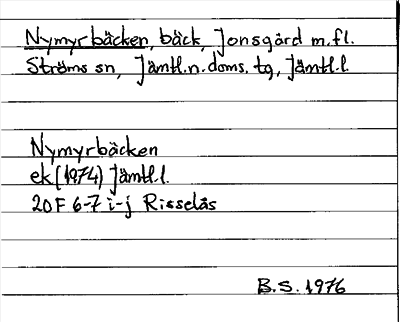 Nymyrbäcken, bäck, Jonsgård m.fl.
Ströms sn, Jämtl.n.doms. tg, Jämtl.l.
Nymyrbäcken
ek (1974) Jämtl.l.
20F 6-7 i-j Risselås
B.S. 1976